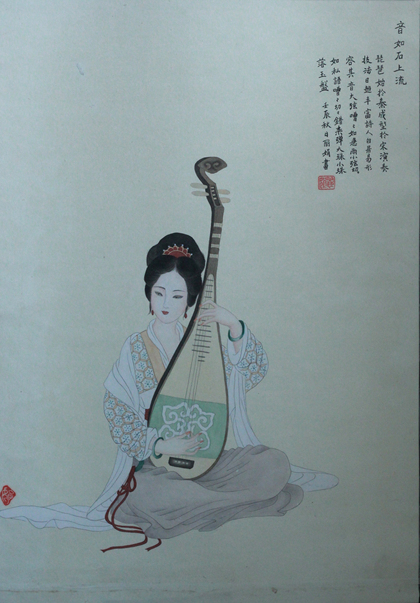 音如石上流
琵琶始於秦成型於宋演奏
技法日趨丰富詩人白居易形
容其音大弦嘈々如急雨小弦切
如私語嘈々切々錯雜彈大珠小珠
落玉盤 壬辰秋日畫